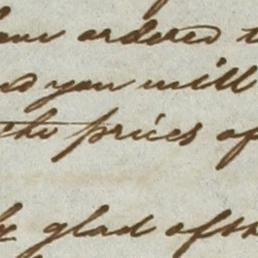 have ordered t
nd you will
the prices of
be glad of th